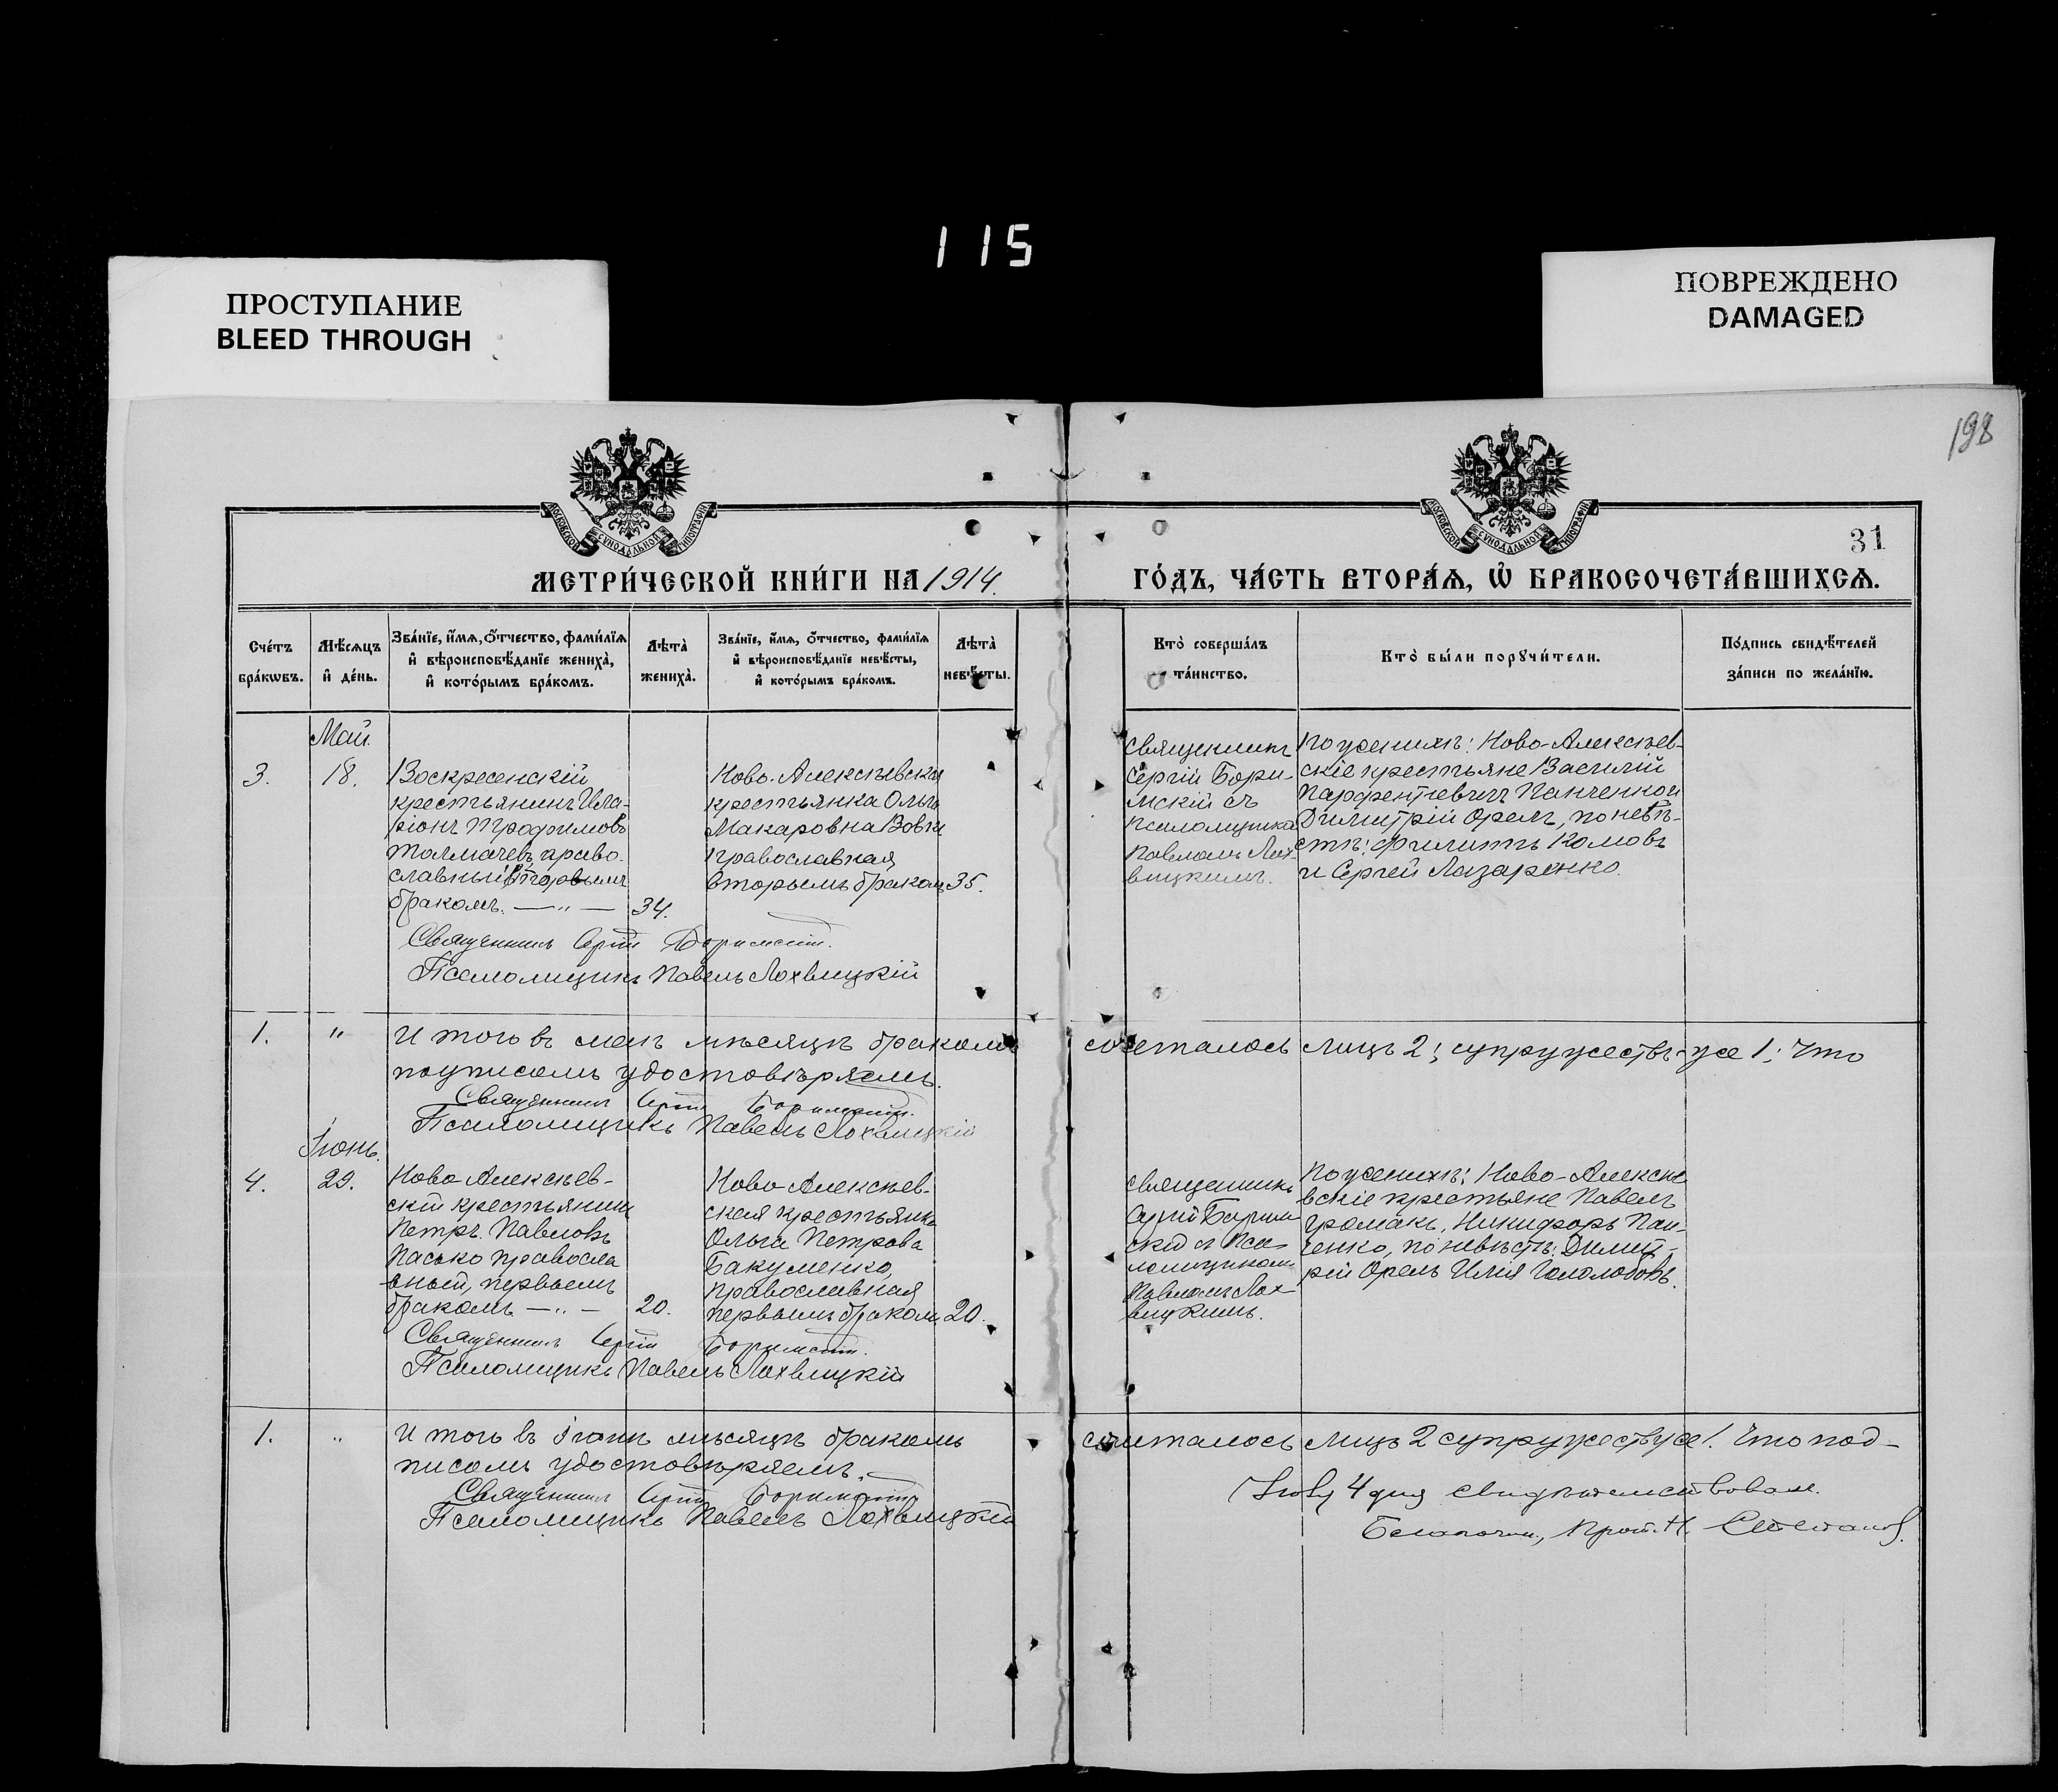 115
ПРОСТУПАНИЕ
BLEED THROUGH
ПОВРЕЖДЕНО
DAMAGED
198
МОСКОВСКОЙ СУНОДАЛЬНОЙ ТИПОГРАФІИ
МОСКОВСКОЙ СУНОДАЛЬНОЙ ТИПОГРАФІИ
31
МЕТРИ́ЧЕСКОЙ КНИ́ГИ НА 1914.
ГО́ДЪ, ЧА́СТЬ ВТОРА́Ѧ, Ѡ҆ БРАКОСОЧЕТА́ВШИХСѦ.
Сче́тъ
бра́кѡвъ.
Мѣ́сѧцъ
и҆ де́нь.
Зва́нїе, и҆́мѧ, ѻ҆́тчество, фами́лїѧ
и҆ вѣроисповѣ́данїе жениха̀,
и҆ кото́рымъ бра́комъ.
Лѣта̀
жениха̀.
Зва́нїе, и҆́мѧ, ѻ҆́тчество, фами́лїѧ
и҆ вѣроисповѣ́данїе невѣ́сты,
и҆ кото́рымъ бра́комъ.
Лѣта̀
невѣ́сты.
Кто̀ соверша́лъ
та́инство.
Кто̀ бы́ли порꙋчи́тели.
По́дпись свидѣ́телей
за́писи по жела́нїю.
Май.
3.
18.
Воскресенскій
крестьянинъ Ила-
ріонъ Трофимовъ
Толмачевъ, право-
славный вторымъ
бракомъ. — „ —
34.
Ново-Алексѣевская
крестьянка Ольга
Макаровна Вовк
православная
вторымъ бракомъ
35.
Священникъ
Сергій Бори-
мскій съ
псаломщикомъ
Павломъ Лох-
вицкимъ.
По женихѣ: Ново-Алексѣев-
скіе крестьяне Василій
Парфентіевичъ Панченко и
Димитрій Орелъ, по невѣ-
стѣ: Филиппъ Комовъ
и Сергей Лазаренко.
Священникъ Сергій Боримскій.
Псаломщикъ Павелъ Лохвицкій
1.
„
Итого въ маѣ мѣсяцѣ бракомъ сочеталось лицъ 2; супружествъ-же 1; Что
подписомъ удостовѣряемъ.
Священникъ Сергій Боримскій.
Псаломщикъ Павелъ Лохвицкій
Іюнь.
4.
29.
Ново-Алексѣев-
скій крестьянинъ
Петръ Павловъ
Пасько правосла
вный, первымъ
бракомъ — „ —
20.
Ново-Алексѣев-
ская крестьянка
Ольга Петрова
Бакуменко,
православная
первымъ бракомъ
20.
Священникъ
Сергій Борим
скій съ Пса
ломщикомъ
Павломъ Лох-
вицкимъ.
По женихѣ: Ново-Алексѣе
вскіе крестьяне Павелъ
Громакъ, Никифоръ Пан-
ченко, по невѣстѣ: Димит-
рій Орелъ Илія Гололобовъ.
Священникъ Сергій Боримскій.
Псаломщикъ Павелъ Лохвицкій
1.
„
Итого въ іюнѣ мѣсяцѣ бракомъ сочеталось лицъ 2 супружествъ же 1. Что под-
писомъ удостовѣряемъ.
Священникъ Сергій Боримскій
Псаломщикъ Павелъ Лохвицкій
4 дня свидѣтельствовалъ.
Прот. Н.